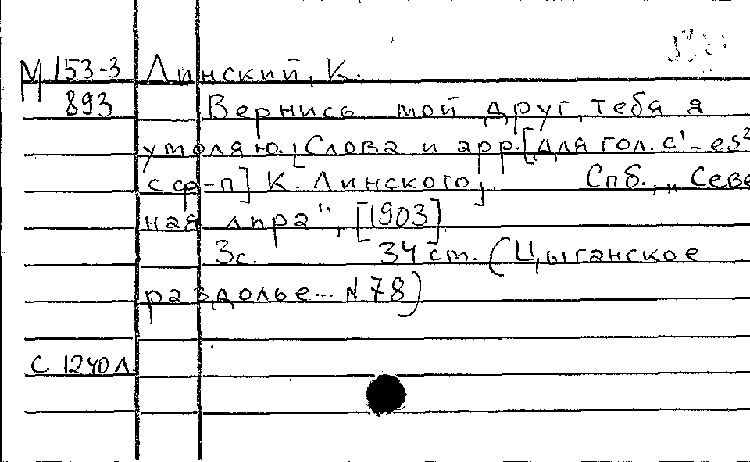 М 153-3 Линский, К.
893 Вернись мой друг, тебя я
умоляю. [Слова и арр. [для гол. c'-es²
с ф-п] К. Линского]. Спб., „Севе
ная лира", [1903]
3с. 34 см. (Цыганское
раздолье... N 78)
С 1240 л